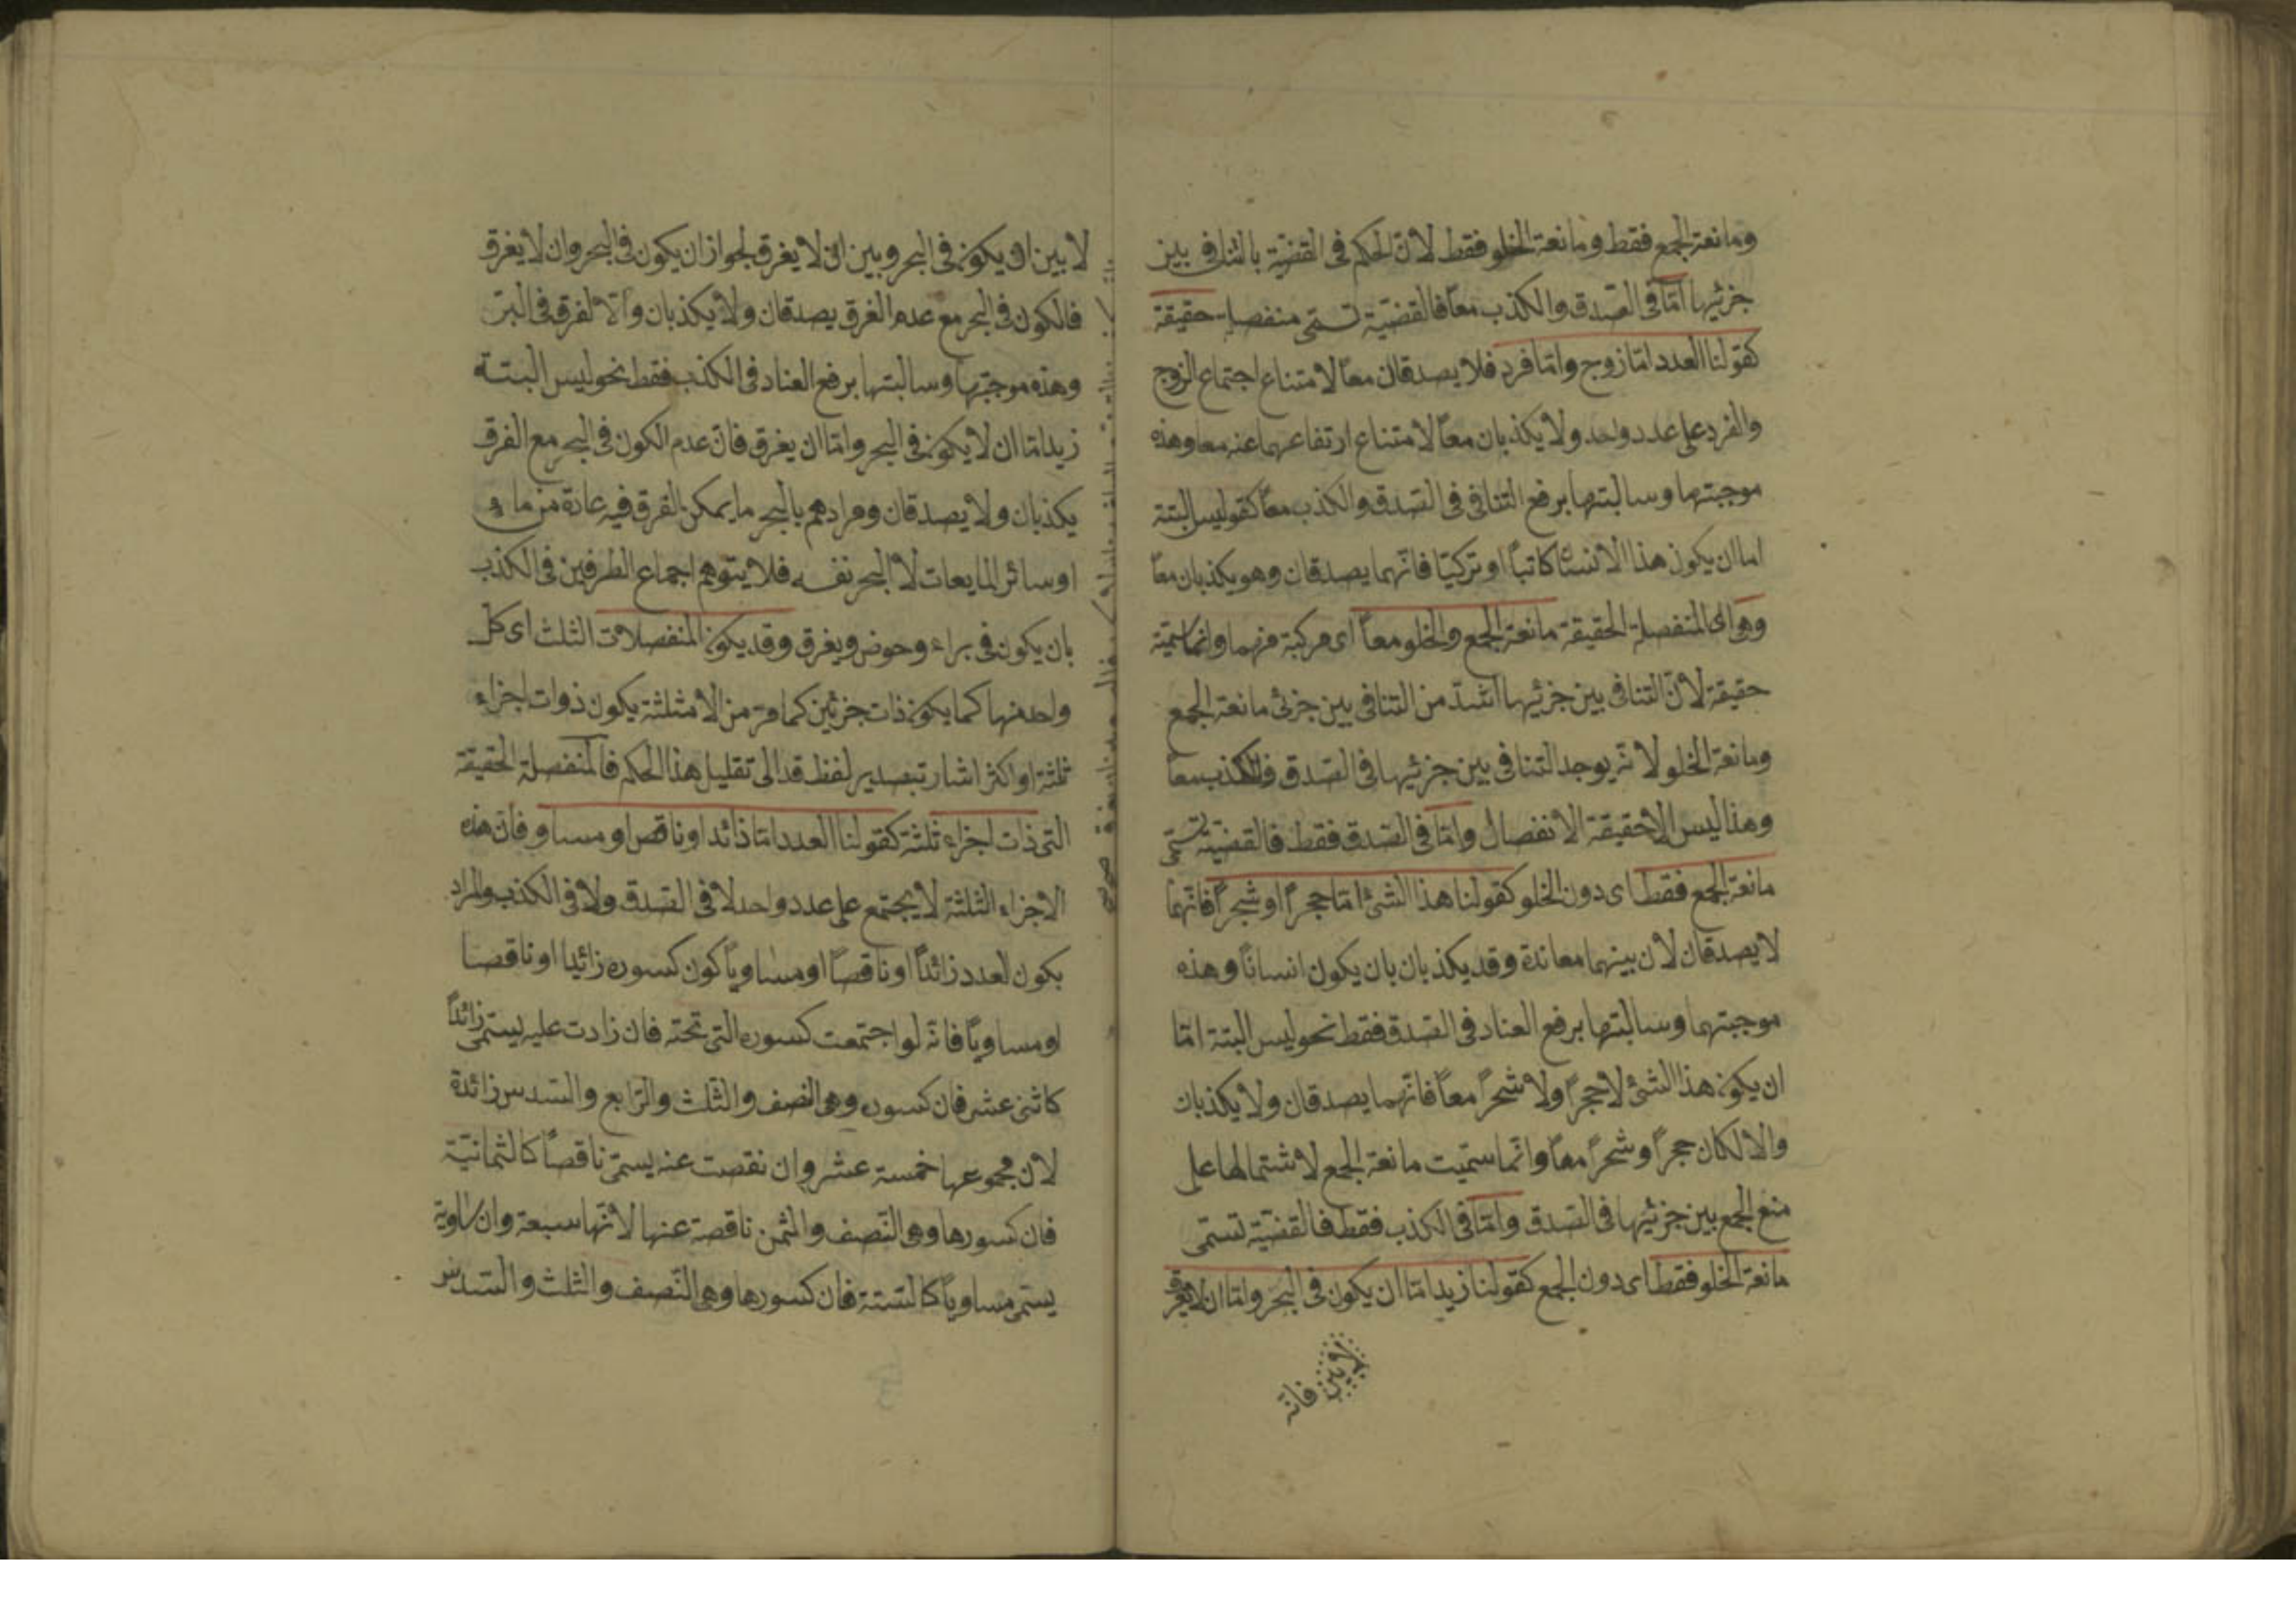 ومانعة الجمع فقط ومانعة الخلو فقط لان الحكم فى القضيّة بالتنافى بين
جزئيها امّا فى الصّدق والكذب معاً فالقضيّة تسمّى منفصلة حقيقة
كقولنا العدد امّا زوج وامّا فرد فلا يصدقان معاً لامتناع اجتماع الزوج
والفرد على عدد واحد ولا يكذبان معاً لامتناع ارتفاعهما عنه معا وهذه
موجبتها وسالبتها برفع التنافى فى الصّدق والكذب معاً كقولنا ليس البتة
اما ان يكون هذا الانسان كاتباً او تركيّا فانّهما يصدقان وهو يكذبان معاً
وهى اى المنفصلة الحقيقة مانعة الجمع والخلو معاً اى مركبة منهما وانما سمّيته
حقيقة لانّ التنافى بين جزئيها اشدّ من التنافى بين جزئى مانعة الجمع
ومانعة الخلو لانّه يوجد التنافى بين جزئيها فى الصّدق والكذب معاً
وهذا ليس الا حقيقة الانفصال وامّا فى الصّدق فقط فالقضيّة تسمّى
مانعة الجمع فقط اى دون الخلو كقولنا هذا الشئ امّا حجرٌ او شجرٌ فانّهما
لا يصدقان لان بينهما معاندة وقد يكذبان بان يكون انسانًا وهذه
موجبتها وسالبتها برفع العناد فى الصّدق فقط نحو ليس البتة امّا
ان يكون هذا الشئ لا حجرًا ولا شجرًا معاً فانّهما يصدقان ولا يكذبان
والا لكان حجرًا وشجرًا معاً وانّما سمّيت مانعة الجمع لاشتمالها على
منع الجمع بين جزئيها فى الصّدق وامّا فى الكذب فقط فالقضيّة تسمّى
مانعة الخلو فقط اى دون الجمع كقولنا زيد امّا ان يكون فى البحر وامّا ان لا يغرق
فانّه
لا بين ان يكون فى البحر وبين ان لا يغرق لجواز ان يكون فى البحر وان لا يغرق
فالكون فى البحر مع عدم الغرق يصدقان ولا يكذبان والا لغرق فى البرّ
وهذه موجبتها وسالبتها برفع العناد فى الكذب فقط نحو ليس البتة
زيد امّا ان لا يكون فى البحر وامّا ان يغرق فانّ عدم الكون فى البحر مع الغرق
يكذبان ولا يصدقان ومرادهم بالبحر ما يمكن الغرق فيه عادة من ماء
او سائر المايعات لا البحر نفسه فلا يتوهم اجماع الطرفين فى الكذب
بان يكون فى براء وحوض ويغرق وقد يكون المنفصلات الثلث اى كل
واحد منها كما يكون ذات جزئين كما مرّ من الامثلثة يكون ذوات اجزاء
ثلثة او اكثر اشار بتصدير لفظ قد الى تقليل هذا الحكم فالمنفصلة الحقيقة
التى ذات اجزاء ثلثة كقولنا العدد امّا زائد او ناقص او مساو فانّ هذه
الاجزاء الثلثة لا يجتمع على عدد واحد لا فى الصّدق ولا فى الكذب والمراد
بكون العدد زائداً او ناقصًا او مساويًا كون كسوره زائدا او ناقصا
او مساويًا فانّه لو اجتمعت كسوره التى تحته فان زادت عليه يسمّى زائداً
كاثنى عشر فان كسوره وهى النصف والثلث والرّابع والسّدس زائدة
لان مجموعها خمسة عشر وان نقصت عنه يسمّى ناقصاً كالثمانيّة
فان كسورها وهى النّصف والثمن ناقصة عنها لانّها سبعة وان ساوية
يسمّى مساويًا كالستة فان كسورها وهى النّصف والثلث والسّدس